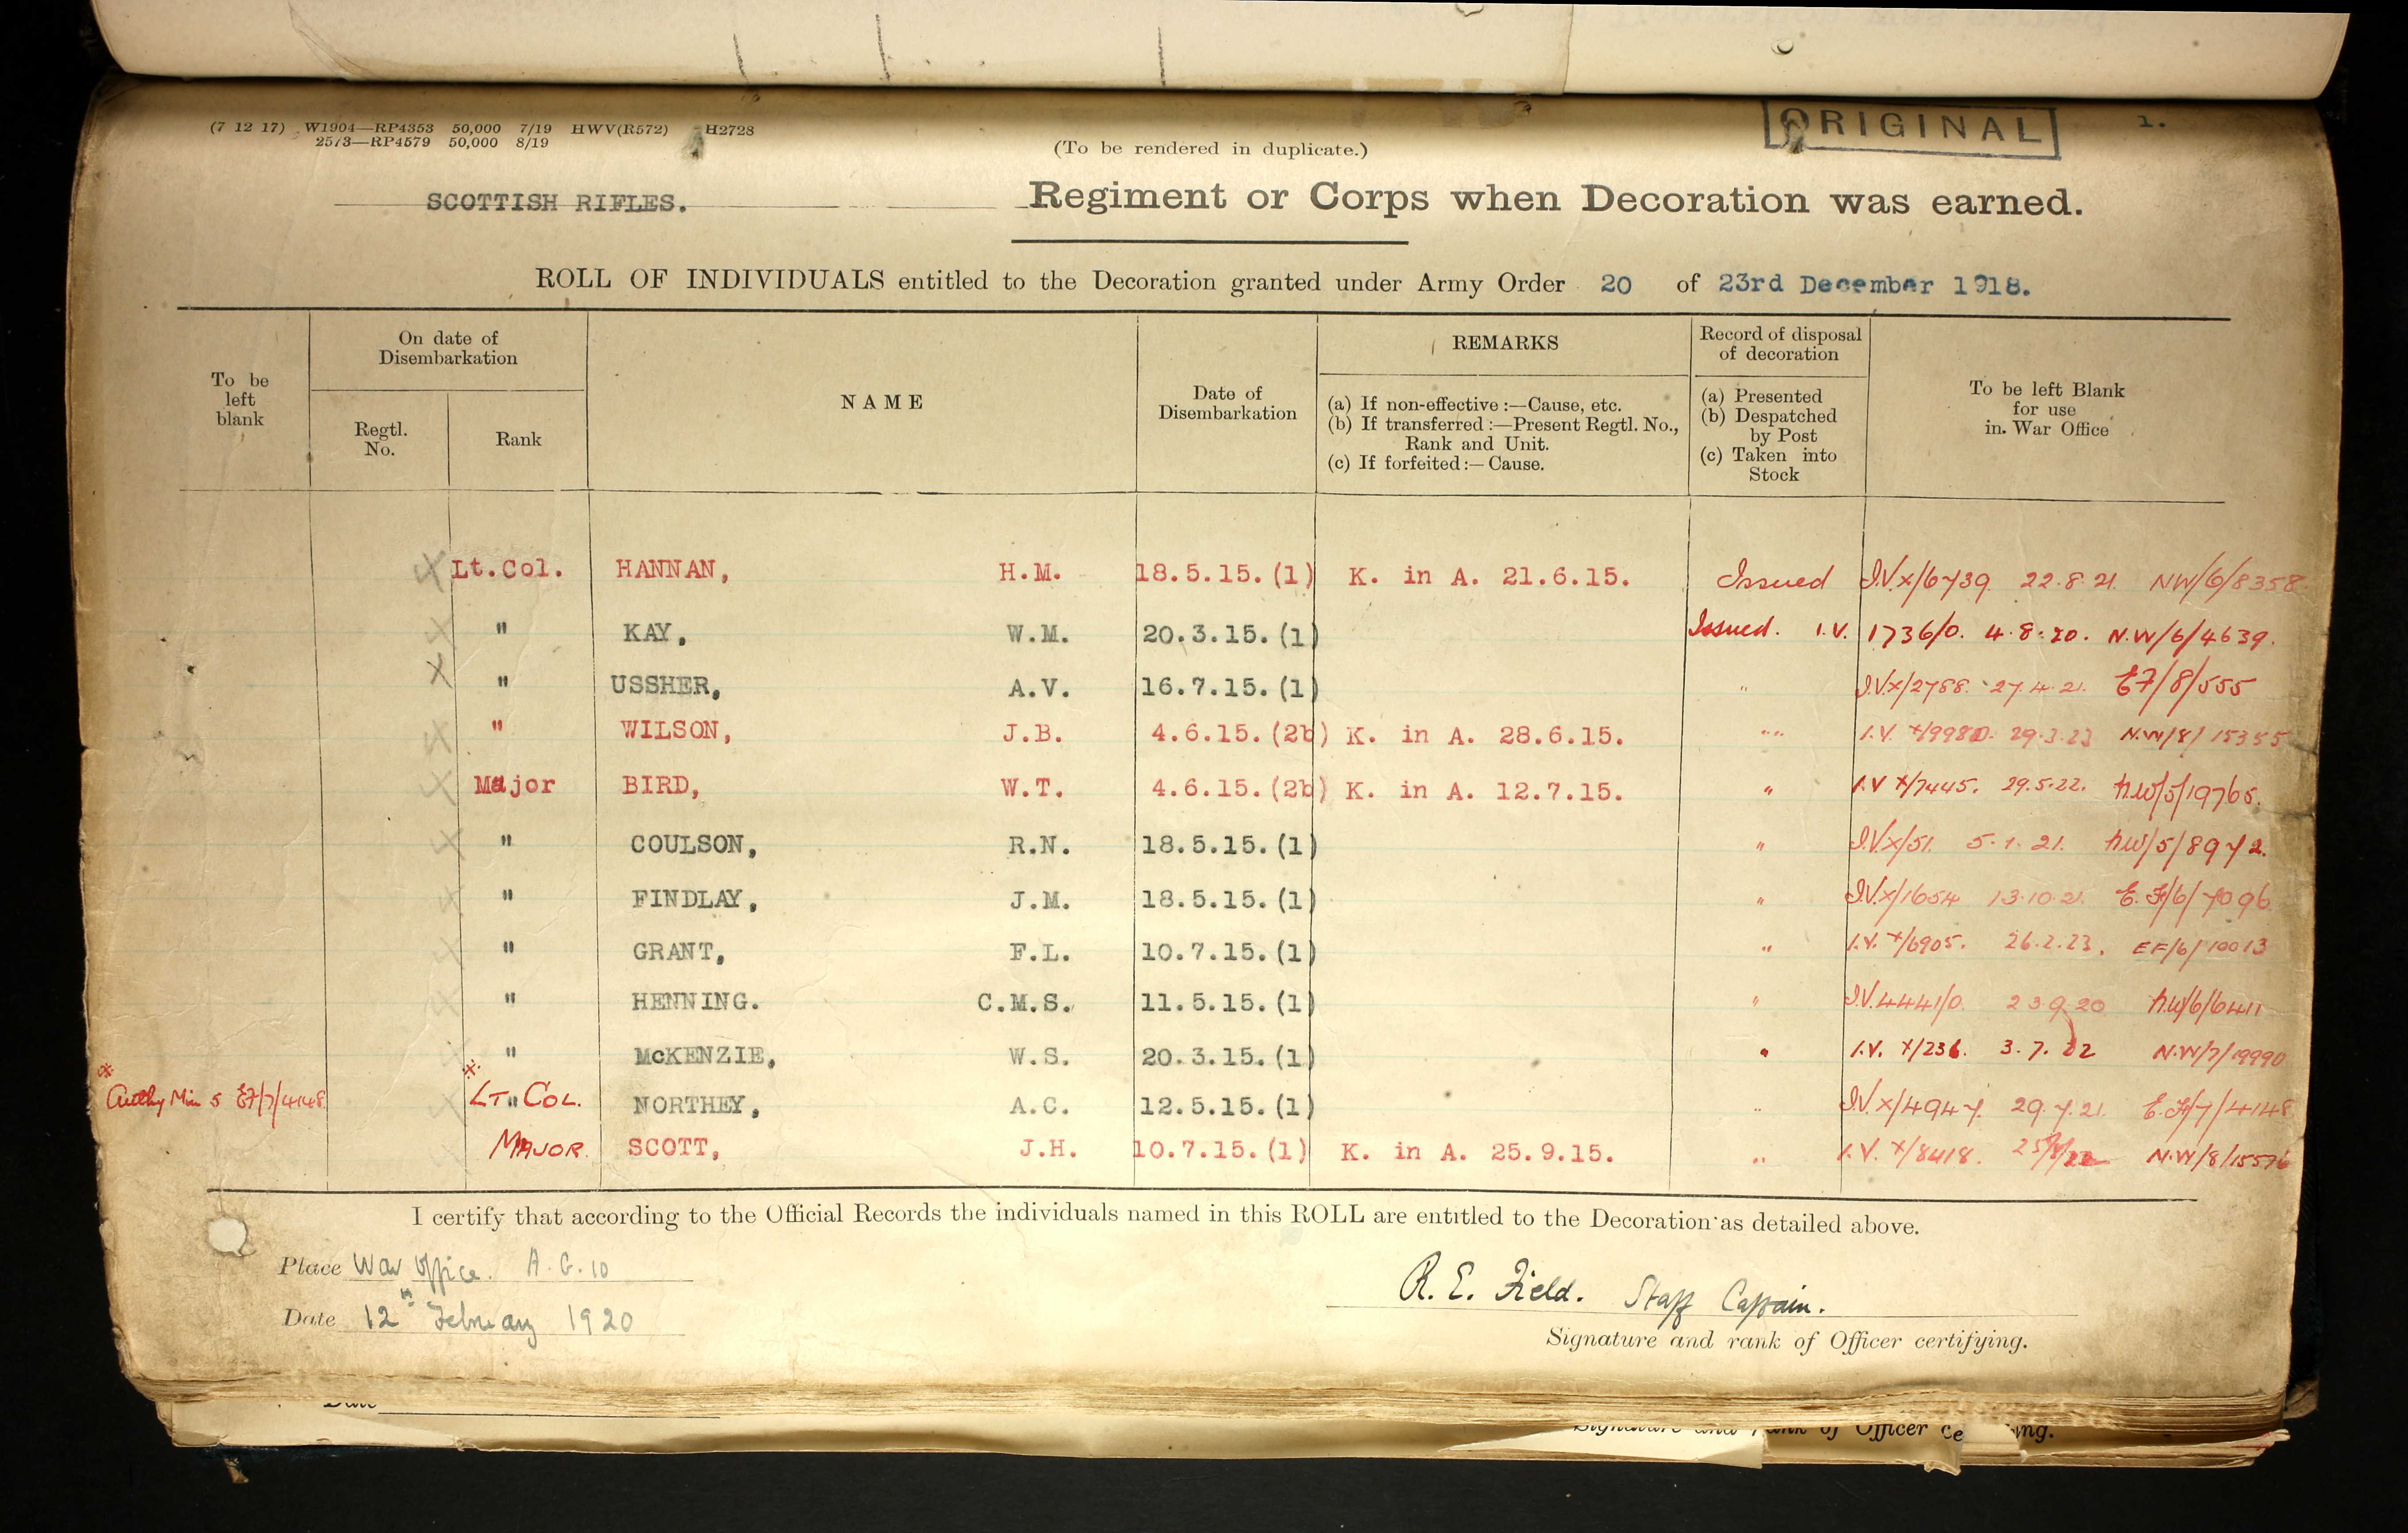 (7 12 17) W1904—RP4353 50,000 7/19 HWV(R572) H2728
2573—RP4579 50,000 8/19
ORIGINAL
1.
(To be rendered in duplicate.)
SCOTTISH RIFLES. Regiment or Corps when Decoration was earned.
ROLL OF INDIVIDUALS entitled to the Decoration granted under Army Order 20 of 23rd December 1918.
To be left blank
On date of Disembarkation
Regtl. No.
Rank
NAME
Date of Disembarkation
REMARKS
(a) If non-effective :—Cause, etc.
(b) If transferred :—Present Regtl. No., Rank and Unit.
(c) If forfeited :— Cause.
Record of disposal of decoration
(a) Presented
(b) Despatched by Post
(c) Taken into Stock
To be left Blank for use in War Office
Lt.Col. HANNAN, H.M. 18.5.15.(1) K. in A. 21.6.15. Issued I.V.X/6739. 22.8.21. NW/6/8358
" KAY, W.M. 20.3.15.(1) Issued. I.V. 1736/0. 4.8.20. N.W/6/4639.
" USSHER, A.V. 16.7.15.(1) " I.V.X/2788. 27.4.21. EF/8/555
" WILSON, J.B. 4.6.15.(2b) K. in A. 28.6.15. " I.V. X/9980. 29.3.23 N.W/8/15355
Major BIRD, W.T. 4.6.15.(2b) K. in A. 12.7.15. " I.V X/7445. 29.5.22. N.W/5/19765.
" COULSON, R.N. 18.5.15.(1) " I.V.X/51. 5.1.21. N.W/5/8972.
" FINDLAY, J.M. 18.5.15.(1) " I.V.X/1654 13.10.21. E.F/6/7096
" GRANT, F.L. 10.7.15.(1) " I.V. X/6905. 26.2.23. EF/6/10013
" HENNING. C.M.S. 11.5.15.(1) " I.V.4441/0. 23.9.20 N.W/6/6411
" McKENZIE, W.S. 20.3.15.(1) " I.V. X/236. 3.7.22 N.W/7/19990
Authy Min 5 EF/7/4148 LT. COL. NORTHEY, A.C. 12.5.15.(1) " I.V.X/4947. 29.7.21. E.F/7/4148
MAJOR. SCOTT, J.H. 10.7.15.(1) K. in A. 25.9.15. " I.V. X/8418. N.W/8/15576
I certify that according to the Official Records the individuals named in this ROLL are entitled to the Decoration as detailed above.
Place War Office. A.G.10
Date 12th February 1920
R. E. Field. Staff Captain.
Signature and rank of Officer certifying.
Date
Signature and rank of Officer